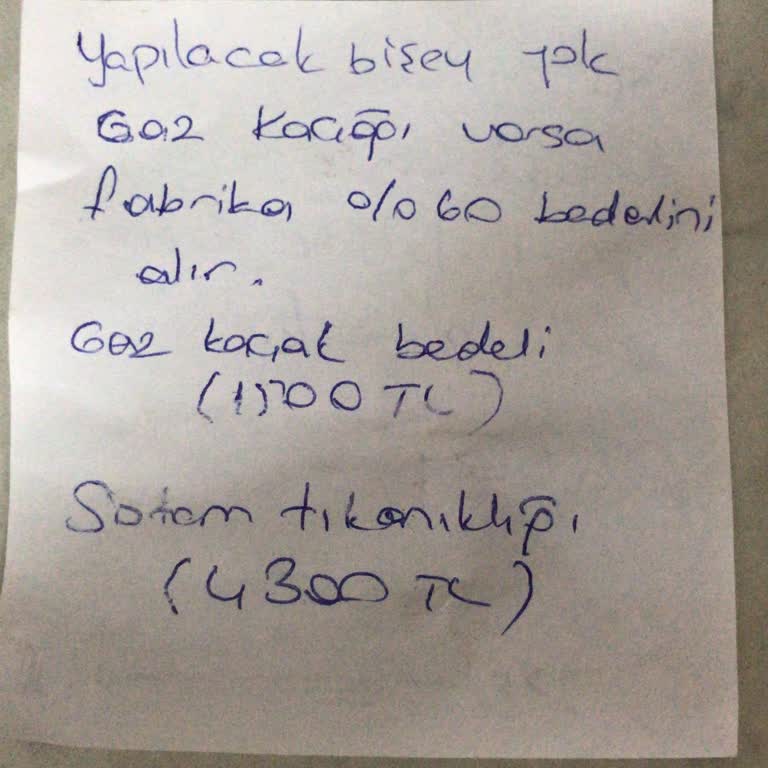 Yapılacak bişey yok
Gaz Kaçağı varsa
fabrika %60 bedelini
alır.
Gaz kaçak bedeli
(1700 TL)
Sotem tıkanıklığı
(4300 TL)